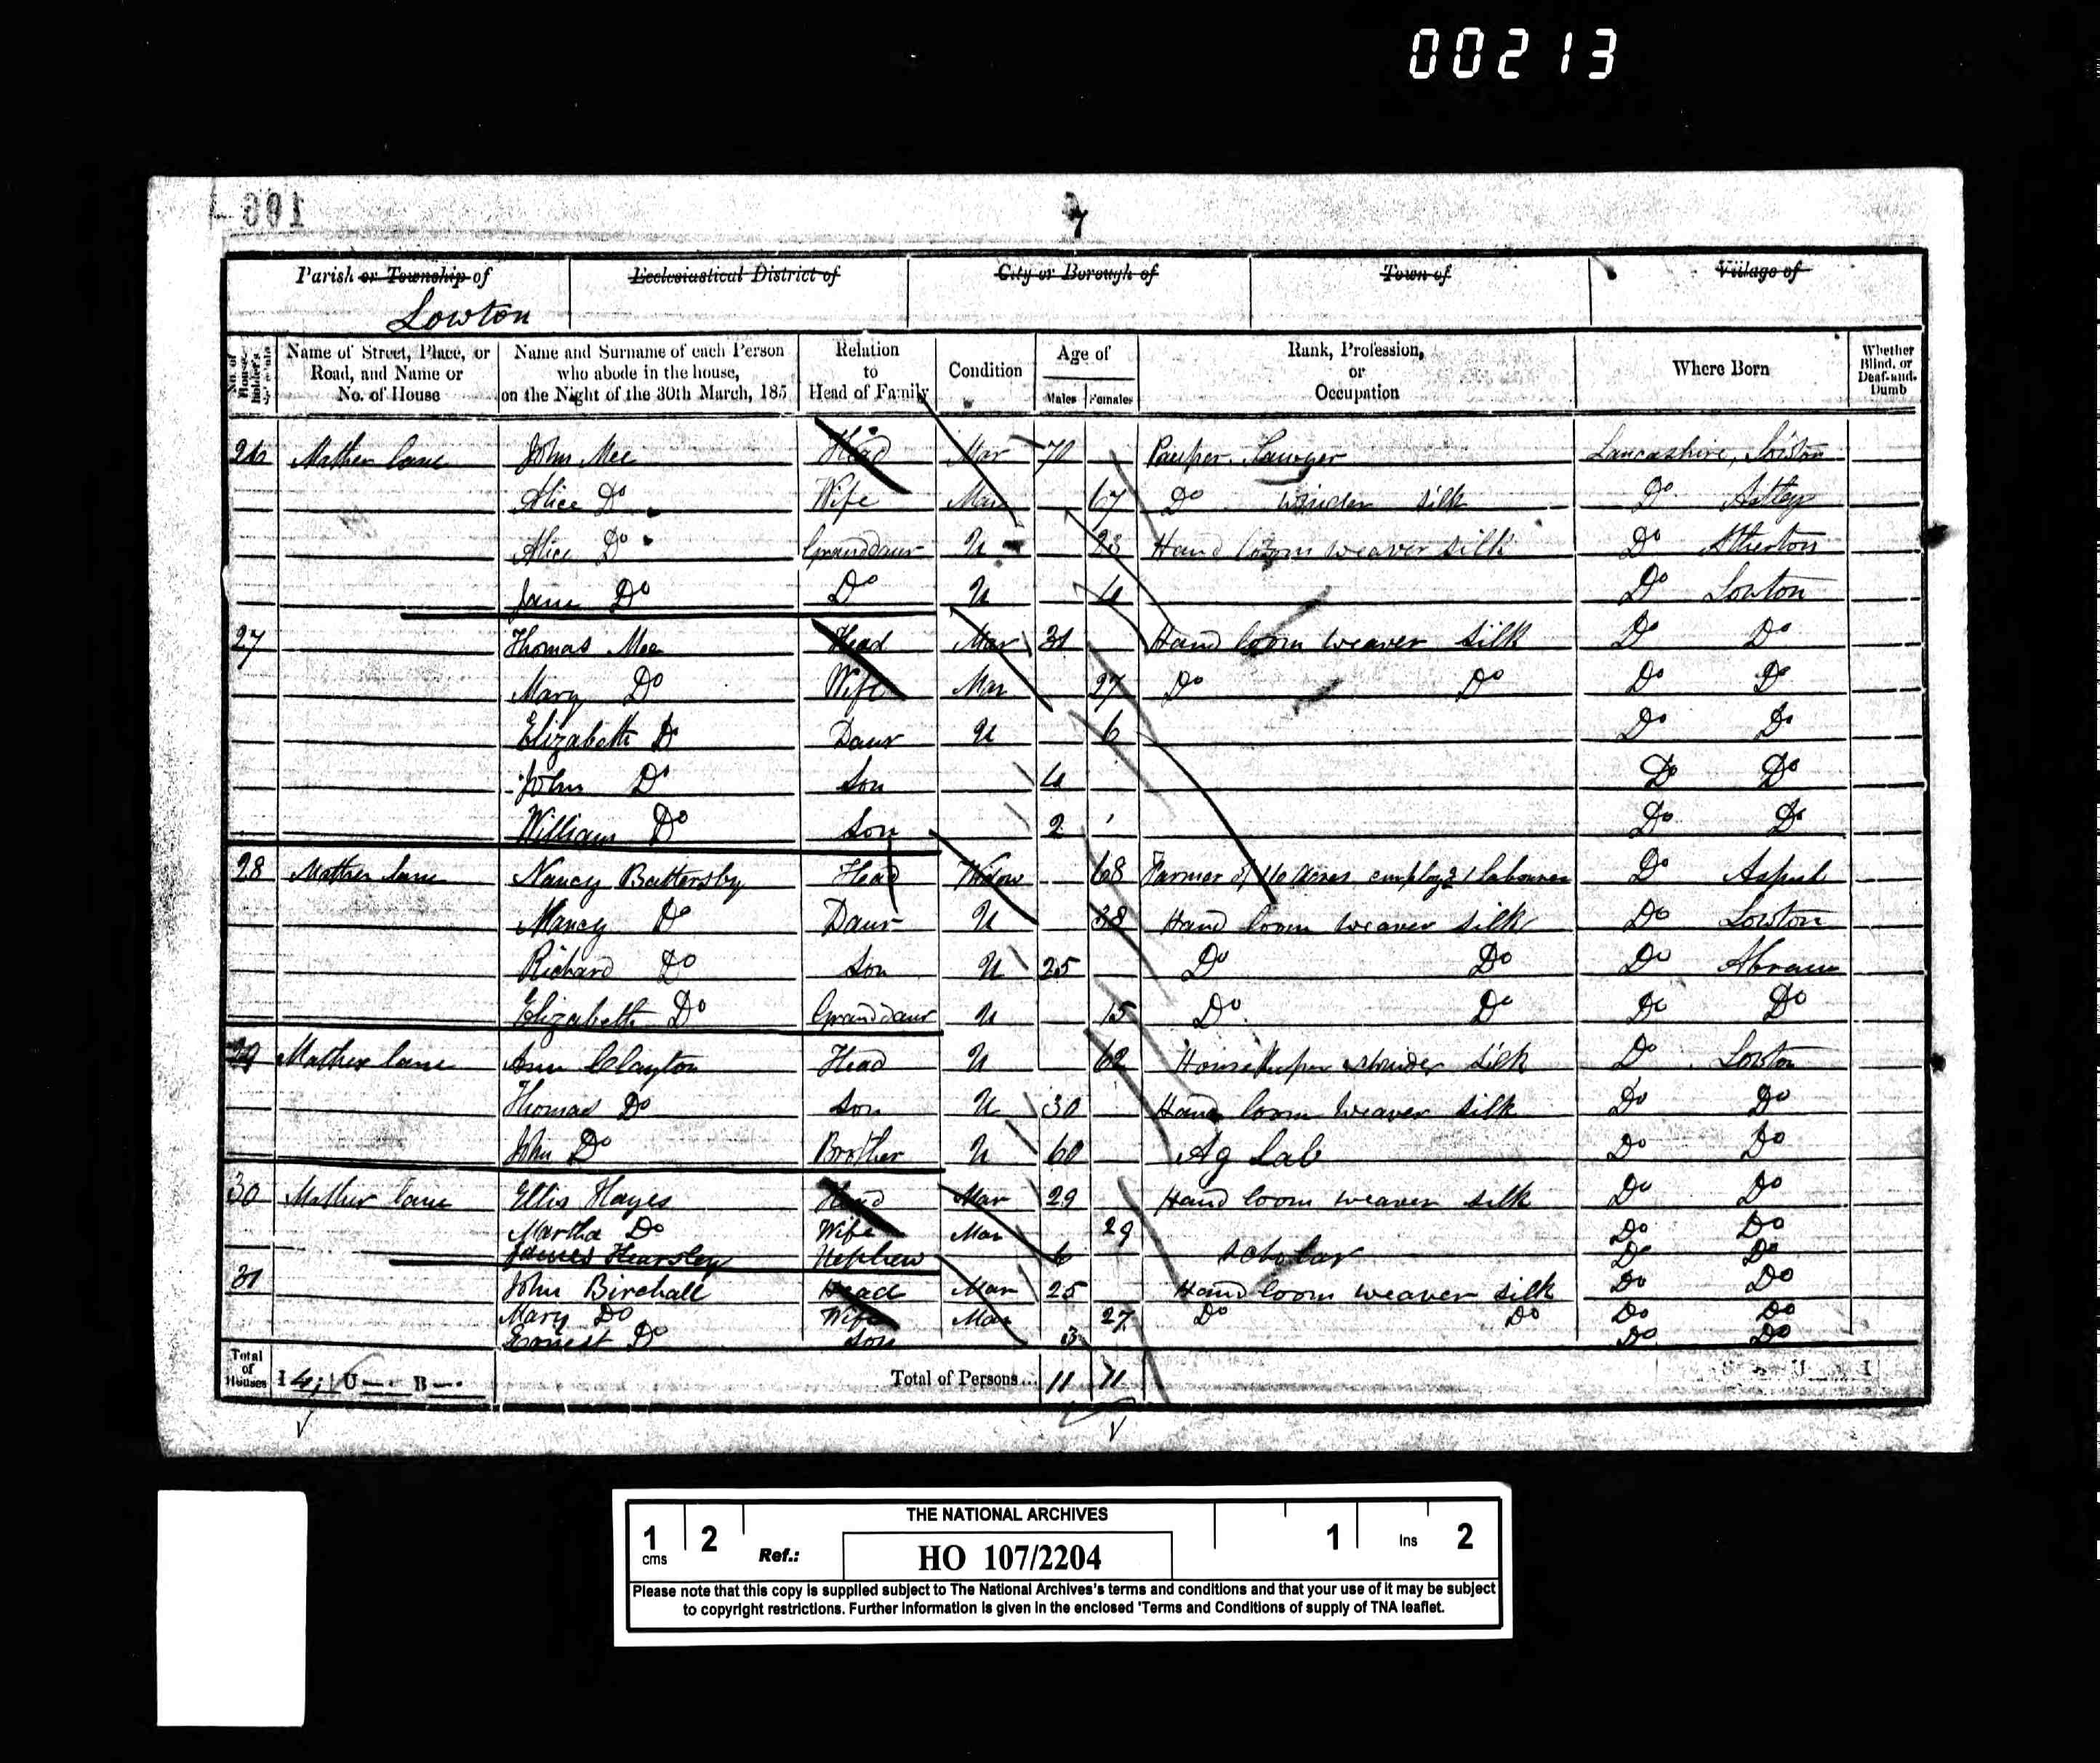 00213
106
7
Parish or Township of Ecclesiastical District of City or Borough of Town of Village of
Lowton
No. of House-holder's Schedule Name of Street, Place, or Road, and Name or No. of House Name and Surname of each Person who abode in the house, on the Night of the 30th March, 185 Relation to Head of Family Condition Age of Males Females Rank, Profession, or Occupation Where Born Whether Blind, or Deaf-and-Dumb
26 Mather Lane John Mee Head Mar 70 Pauper Sawyer Lancashire, Lowton
Alice Do Wife Mar 67 Do Winder Silk Do Astley
Alice Do Granddaur U 23 Hand loom weaver silk Do Atherton
Jane Do Do U 4 Do Lowton
27 Thomas Mee Head Mar 31 Hand loom weaver silk Do Do
Mary Do Wife Mar 27 Do Do Do Do
Elizabeth Do Daur U 6 Do Do
John Do Son 4 Do Do
William Do Son 2 Do Do
28 Mather Lane Nancy Battersby Head Widow 68 Farmer of acres 1 labourer Do Aspul
Nancy Do Daur U 38 Hand loom weaver silk Do Lowton
Richard Do Son U 25 Do Do Do Abram
Elizabeth Do Granddaur U 15 Do Do Do Do
29 Mather Lane Ann Clayton Head U 62 Housekeeper winder silk Do Lowton
Thomas Do Son U 30 Hand loom weaver silk Do Do
John Do Brother U 60 Ag Lab Do Do
30 Mather Lane Ellis Hayes Head Mar 29 Hand loom weaver silk Do Do
Martha Do Wife Mar 29 Do Do
James Hearsley Nephew 6 Scholar Do Do
31 John Birchall Head Mar 25 Hand loom weaver silk Do Do
Mary Do Wife Mar 27 Do Do Do Do
Ernest Do Son 3 Do Do
Total of Houses I 4; U—. B—. Total of Persons... 11 11
THE NATIONAL ARCHIVES
1 cms 2 Ref.: HO 107/2204 1 Ins 2
Please note that this copy is supplied subject to The National Archives's terms and conditions and that your use of it may be subject
to copyright restrictions. Further information is given in the enclosed 'Terms and Conditions of supply of TNA leaflet.